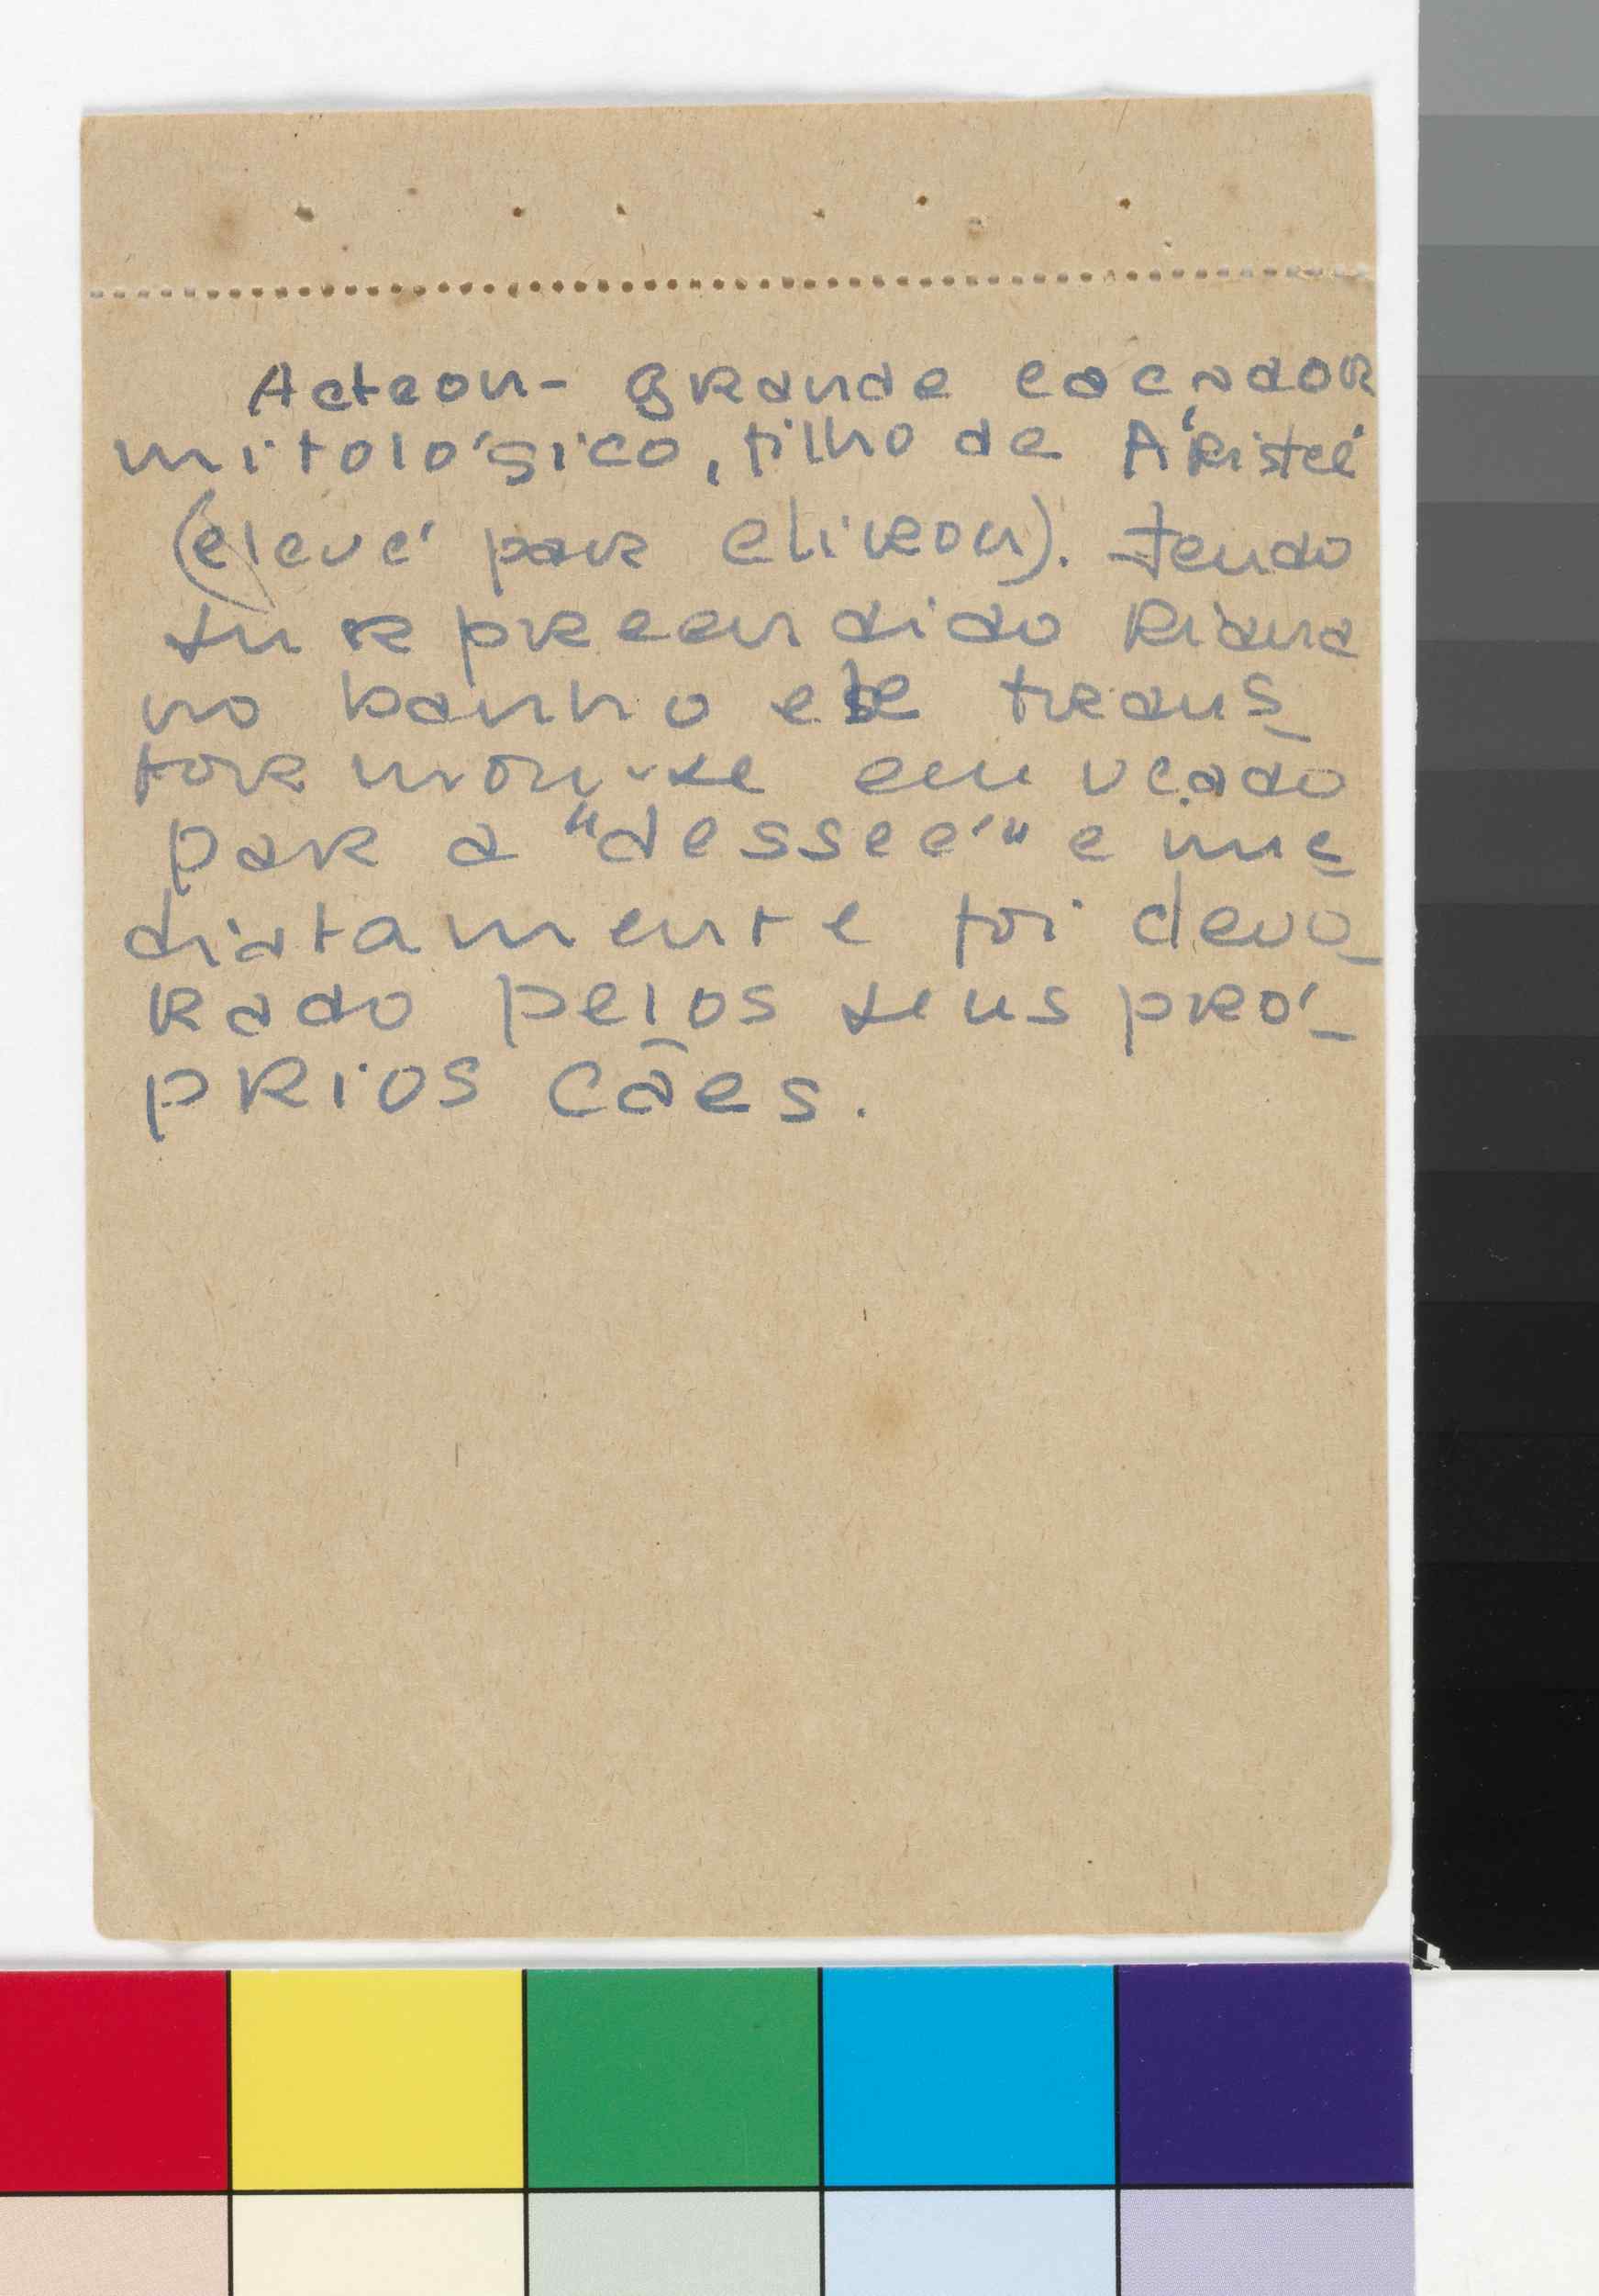 Acteon - grande caçador
mitológico, filho de Áristeé
(elevé par Chireon). tendo
surpreendido Riana
no banho ele trans-
formou-se em veado
par a "desseé" e ime
diatamente foi devo-
rado pelos seus pró-
prios cães.